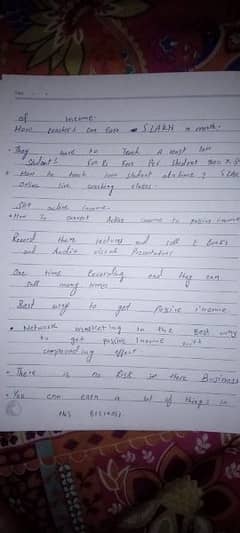 of income.
How teachers can earn 5 LAKH a month.
They have to Teach A least 100
Student Per Student
How to teach 100 student at a time?
online live coaching classes.
active income.
How To convert Active income to passive income
Record there lectures and sell E Books
and Audio visual Presentations
One time Recording and they can
sell many times
Best way to get Passive income.
Network marketing is the Best way
to get passive Income with
compounding effect
There is no Risk in there Business
You can earn a lot of things in
this BUSINESS